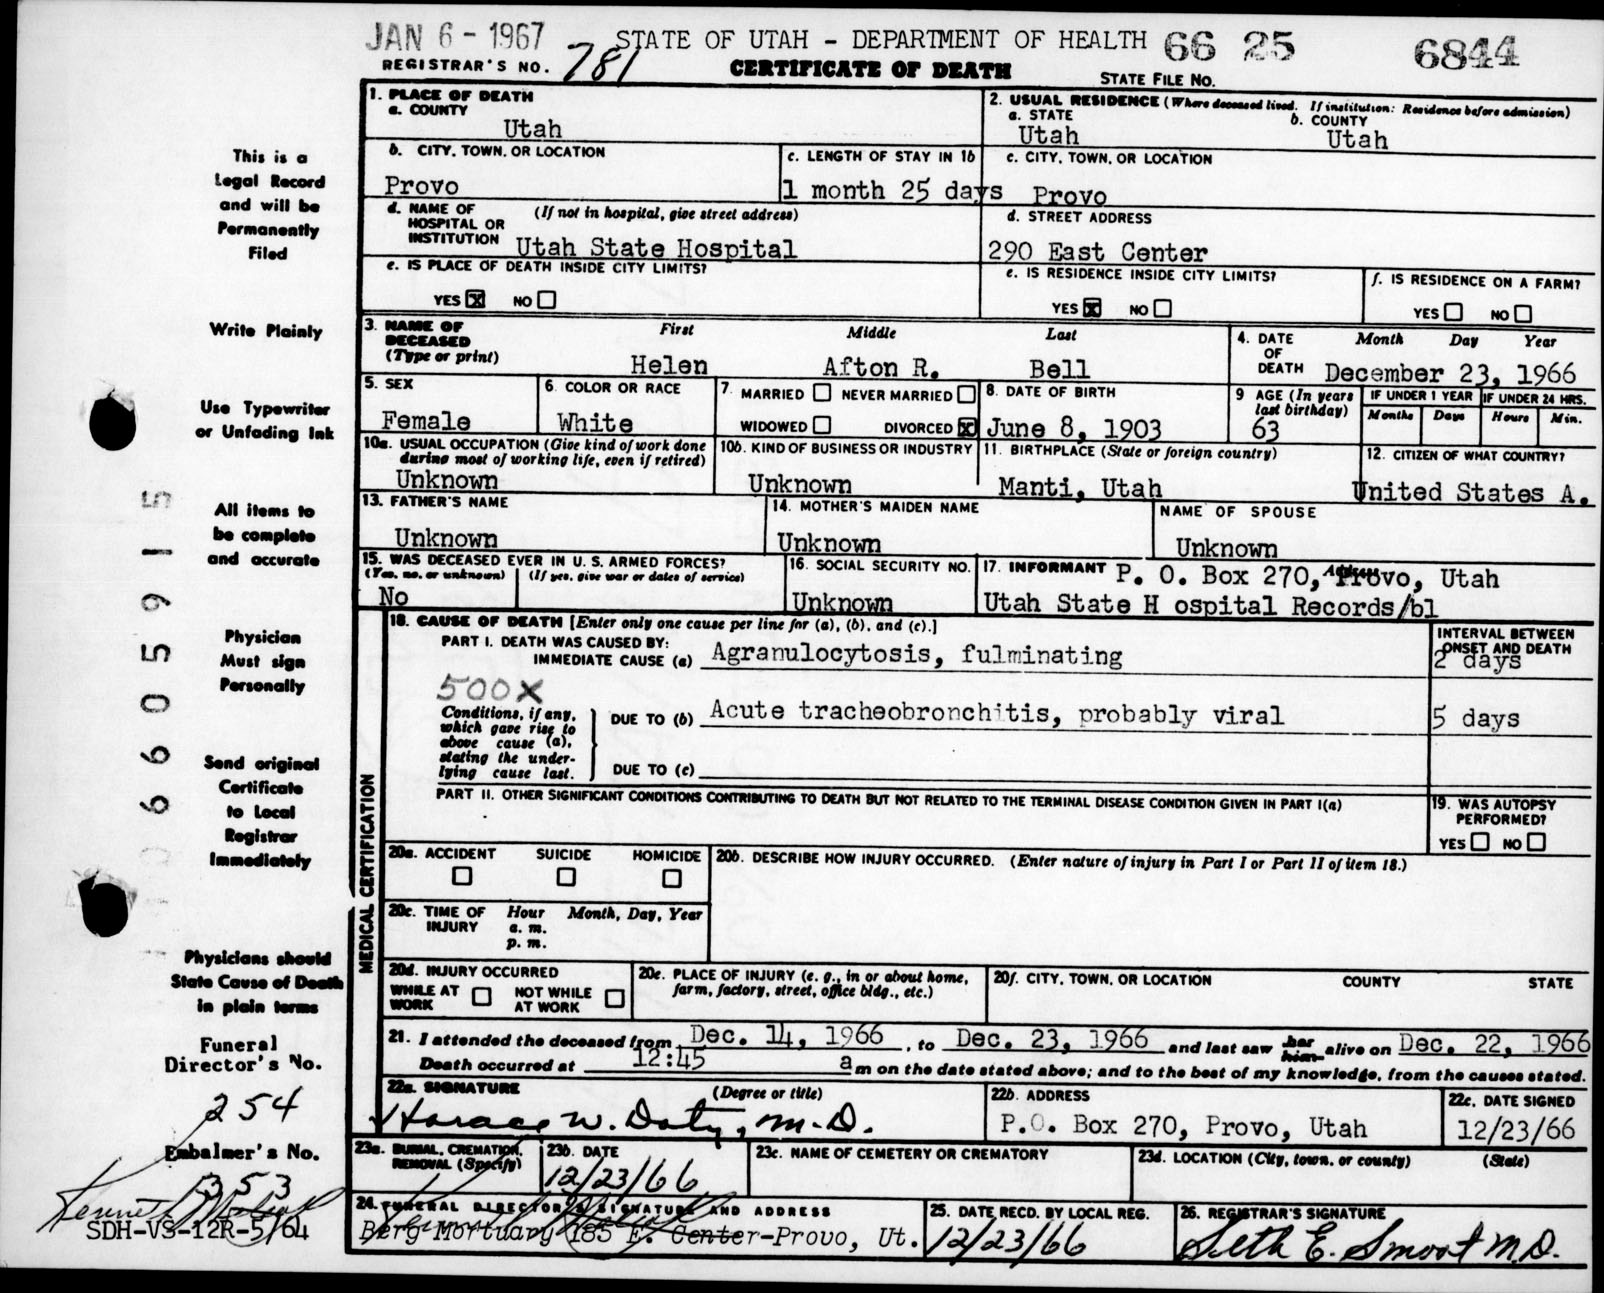 JAN 6 - 1967
STATE OF UTAH - DEPARTMENT OF HEALTH 66 25 6844
REGISTRAR'S NO. 781
CERTIFICATE OF DEATH
STATE FILE NO.
This is a
Legal Record
and will be
Permanently
Filed
Write Plainly
Use Typewriter
or Unfading Ink
All items to
be complete
and accurate
Physician
Must sign
Personally
Send original
Certificate
to Local
Registrar
Immediately
Physicians should
State Cause of Death
in plain terms
Funeral
Director's No.
254
Embalmer's No.
353
SDH-VS-12R-5/64
66059 15
1. PLACE OF DEATH
a. COUNTY
Utah
2. USUAL RESIDENCE (Where deceased lived. If institution: Residence before admission)
a. STATE
Utah
b. COUNTY
Utah
b. CITY, TOWN, OR LOCATION
Provo
c. LENGTH OF STAY IN 1b
1 month 25 days
c. CITY, TOWN, OR LOCATION
Provo
d. NAME OF HOSPITAL OR INSTITUTION (If not in hospital, give street address)
Utah State Hospital
d. STREET ADDRESS
290 East Center
e. IS PLACE OF DEATH INSIDE CITY LIMITS?
YES X NO
e. IS RESIDENCE INSIDE CITY LIMITS?
YES X NO
f. IS RESIDENCE ON A FARM?
YES NO
3. NAME OF DECEASED (Type or print)
First Middle Last
Helen Afton R. Bell
4. DATE OF DEATH
Month Day Year
December 23, 1966
5. SEX
Female
6. COLOR OR RACE
White
7. MARRIED NEVER MARRIED
WIDOWED DIVORCED X
8. DATE OF BIRTH
June 8, 1903
9 AGE (In years last birthday)
63
IF UNDER 1 YEAR
Months Days
IF UNDER 24 HRS.
Hours Min.
10a. USUAL OCCUPATION (Give kind of work done during most of working life, even if retired)
Unknown
10b. KIND OF BUSINESS OR INDUSTRY
Unknown
11. BIRTHPLACE (State or foreign country)
Manti, Utah
12. CITIZEN OF WHAT COUNTRY?
United States A.
13. FATHER'S NAME
Unknown
14. MOTHER'S MAIDEN NAME
Unknown
NAME OF SPOUSE
Unknown
15. WAS DECEASED EVER IN U. S. ARMED FORCES?
(Yes, no, or unknown) (If yes, give war or dates of service)
No
16. SOCIAL SECURITY NO.
Unknown
17. INFORMANT Address
P. O. Box 270, Provo, Utah
Utah State H ospital Records/bl
MEDICAL CERTIFICATION
18. CAUSE OF DEATH [Enter only one cause per line for (a), (b), and (c).]
INTERVAL BETWEEN ONSET AND DEATH
PART I. DEATH WAS CAUSED BY:
IMMEDIATE CAUSE (a) Agranulocytosis, fulminating
2 days
500X
Conditions, if any, which gave rise to above cause (a), stating the underlying cause last.
DUE TO (b) Acute tracheobronchitis, probably viral
5 days
DUE TO (c)
PART II. OTHER SIGNIFICANT CONDITIONS CONTRIBUTING TO DEATH BUT NOT RELATED TO THE TERMINAL DISEASE CONDITION GIVEN IN PART I(a)
19. WAS AUTOPSY PERFORMED?
YES NO
20a. ACCIDENT SUICIDE HOMICIDE
20b. DESCRIBE HOW INJURY OCCURRED. (Enter nature of injury in Part I or Part II of item 18.)
20c. TIME OF INJURY Hour Month, Day, Year
a. m.
p. m.
20d. INJURY OCCURRED
WHILE AT WORK NOT WHILE AT WORK
20e. PLACE OF INJURY (e. g., in or about home, farm, factory, street, office bldg., etc.)
20f. CITY, TOWN, OR LOCATION COUNTY STATE
21. I attended the deceased from Dec. 14, 1966, to Dec. 23, 1966 and last saw her him alive on Dec. 22, 1966
Death occurred at 12:45 a m on the date stated above; and to the best of my knowledge, from the causes stated.
22a. SIGNATURE (Degree or title)
Horace W. Doty, M.D.
22b. ADDRESS
P.O. Box 270, Provo, Utah
22c. DATE SIGNED
12/23/66
23a. BURIAL, CREMATION, REMOVAL (Specify)
23b. DATE
12/23/66
23c. NAME OF CEMETERY OR CREMATORY
23d. LOCATION (City, town, or county) (State)
24. FUNERAL DIRECTOR'S SIGNATURE AND ADDRESS
Berg Mortuary 185 E. Center-Provo, Ut.
25. DATE RECD. BY LOCAL REG.
12/23/66
26. REGISTRAR'S SIGNATURE
Seth E. Smoot M.D.